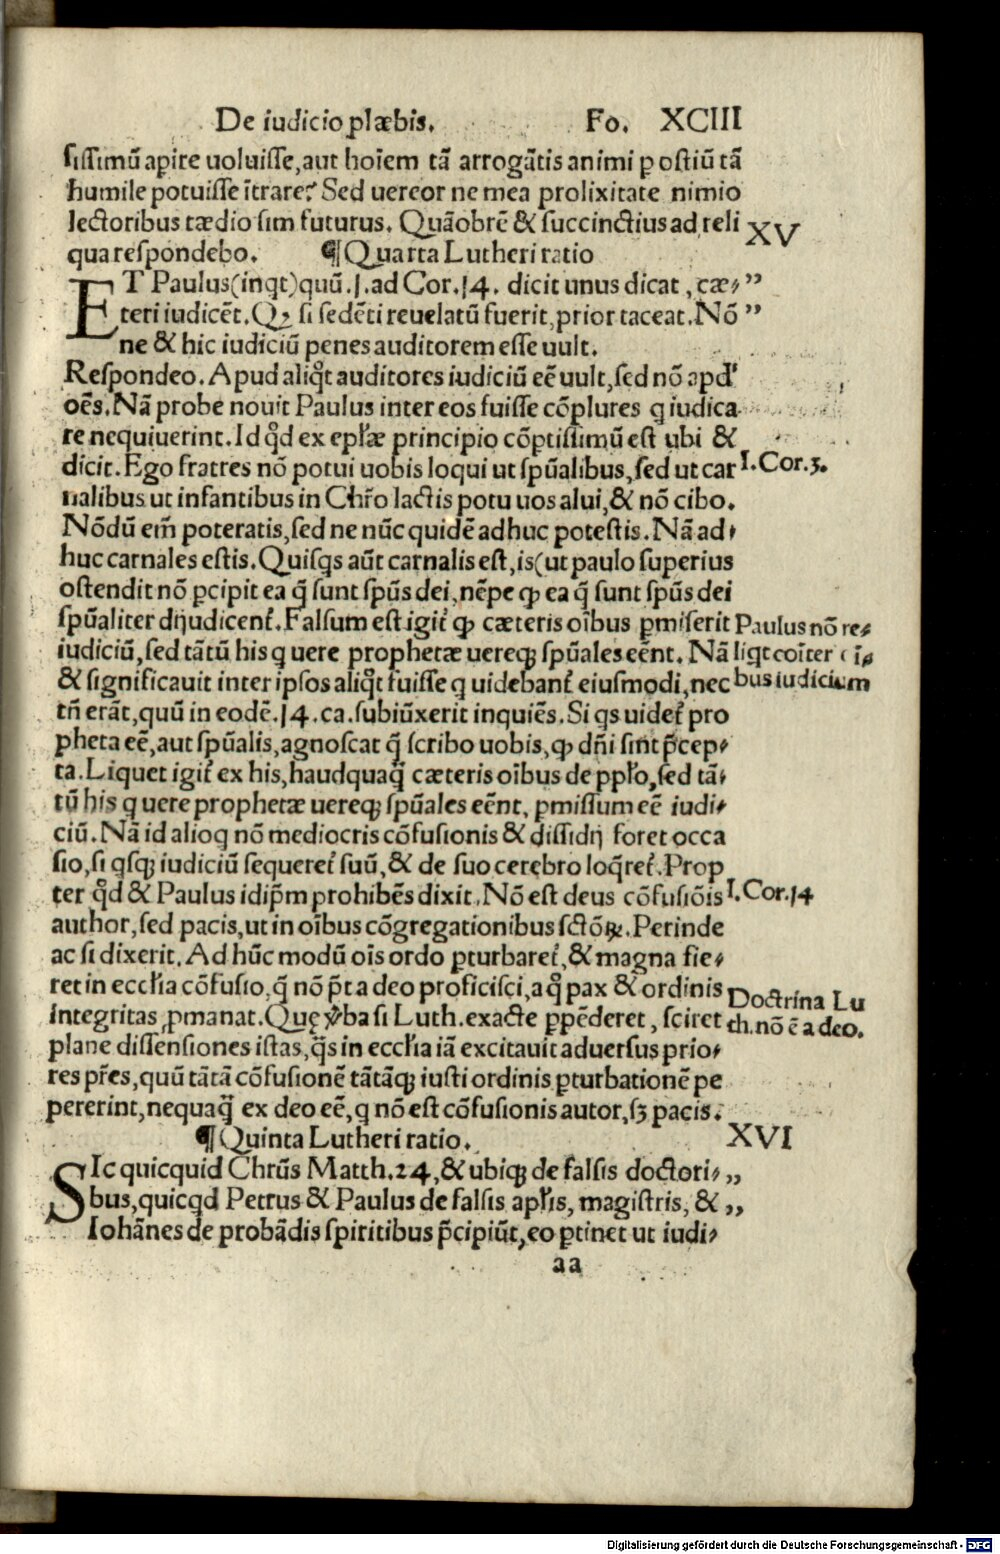 De iudicio plæbis. Fo. XCIII
sissimū apire uoluisse, aut hoīem tā arrogātis animi p ostiū tā
humile potuisse ītrare? Sed uereor ne mea prolixitate nimio
lectoribus tædio sim futurus. Quāobrē & succinctius ad reli
qua respondebo. ¶ Quarta Lutheri ratio
XV
ET Paulus (inqt) quū .1. ad Cor. 14. dicit unus dicat, cæ⸗ ”
teri iudicēt. Qꝫ si sedēti reuelatū fuerit, prior taceat. Nō ”
ne & hic iudiciū penes auditorem esse uult.
Respondeo. Apud aliq̄t auditores iudiciū eē uult, sed nō apd'
oēs. Nā probe nouit Paulus inter eos fuisse cōplures q iudica
re nequiuerint. Id qd̄ ex epłæ principio cōptissimū est ubi &
dicit. Ego fratres nō potui uobis loqui ut spūalibus, sed ut car
I. Cor. 3.
nalibus ut infantibus in Chřo lactis potu uos alui, & nō cibo.
Nōdū em̄ poteratis, sed ne nūc quidē adhuc potestis. Nā ad⸗
huc carnales estis. Quisqs aūt carnalis est, is (ut paulo superius
ostendit nō ꝑcipit ea q̄ sunt spūs dei, nēpe ꝙ ea q̄ sunt spūs dei
spūaliter dijudicent̃. Falsum est igit̃ ꝙ cæteris oībus ꝑmiserit
iudiciū, sed tātū his q uere prophetæ uereqꝫ spūales eēnt. Nā
& significauit inter ipsos aliq̄t fuisse q uidebant̃ eiusmodi, nec
Paulus nō re⸗
liqt coīter oī⸗
bus iudicium
tn̄ erāt, quū in eodē .14. ca. subiūxerit inquiēs. Si qs uidet̃ pro
pheta eē, aut spūalis, agnoscat q̄ scribo uobis, ꝙ dn̄i sint p̄cep⸗
ta. Liquet igit̃ ex his, haudquaq̄ cæteris oībus de pplo, sed tā⸗
tū his q uere prophetæ uereqꝫ spūales eēnt, ꝑmissum eē iudi⸗
ciū. Nā id alioq nō mediocris cōfusionis & dissidij foret occa
sio, si qsqꝫ iudiciū sequeret̃ suū, & de suo cerebro loq̄ret̃. Prop
ter qd̄ & Paulus idip̄m prohibēs dixit. Nō est deus cōfusiōis
I. Cor. 14
author, sed pacis, ut in oībus cōgregationibus sctōꝝ. Perinde
ac si dixerit. Ad hūc modū oīs ordo ꝑturbaret̃, & magna fie⸗
ret in eccłia cōfusio, q̄ nō p̄t a deo proficisci, a q̄ pax & ordinis
integritas ꝑmanat. Quę ṽba si Luth. exacte ꝑpēderet, sciret
Doctrina Lu
th. nō ē a deo.
plane dissensiones istas, q̄s in eccłia iā excitauit aduersus prio⸗
res př̄es, quū tātā cōfusionē tātāqꝫ iusti ordinis ꝑturbationē pe
pererint, nequaq̄ ex deo eē, q nō est cōfusionis autor, sꝫ pacis.
¶ Quinta Lutheri ratio.
XVI
SIc quicquid Chrūs Matth. 24, & ubiqꝫ de falsis doctori⸗ „
bus, quicqd Petrus & Paulus de falsis apłis, magistris, & „
Iohānes de probādis spiritibus p̄cipiūt, eo ꝑtinet ut iudi⸗
aa
Digitalisierung gefördert durch die Deutsche Forschungsgemeinschaft - DFG